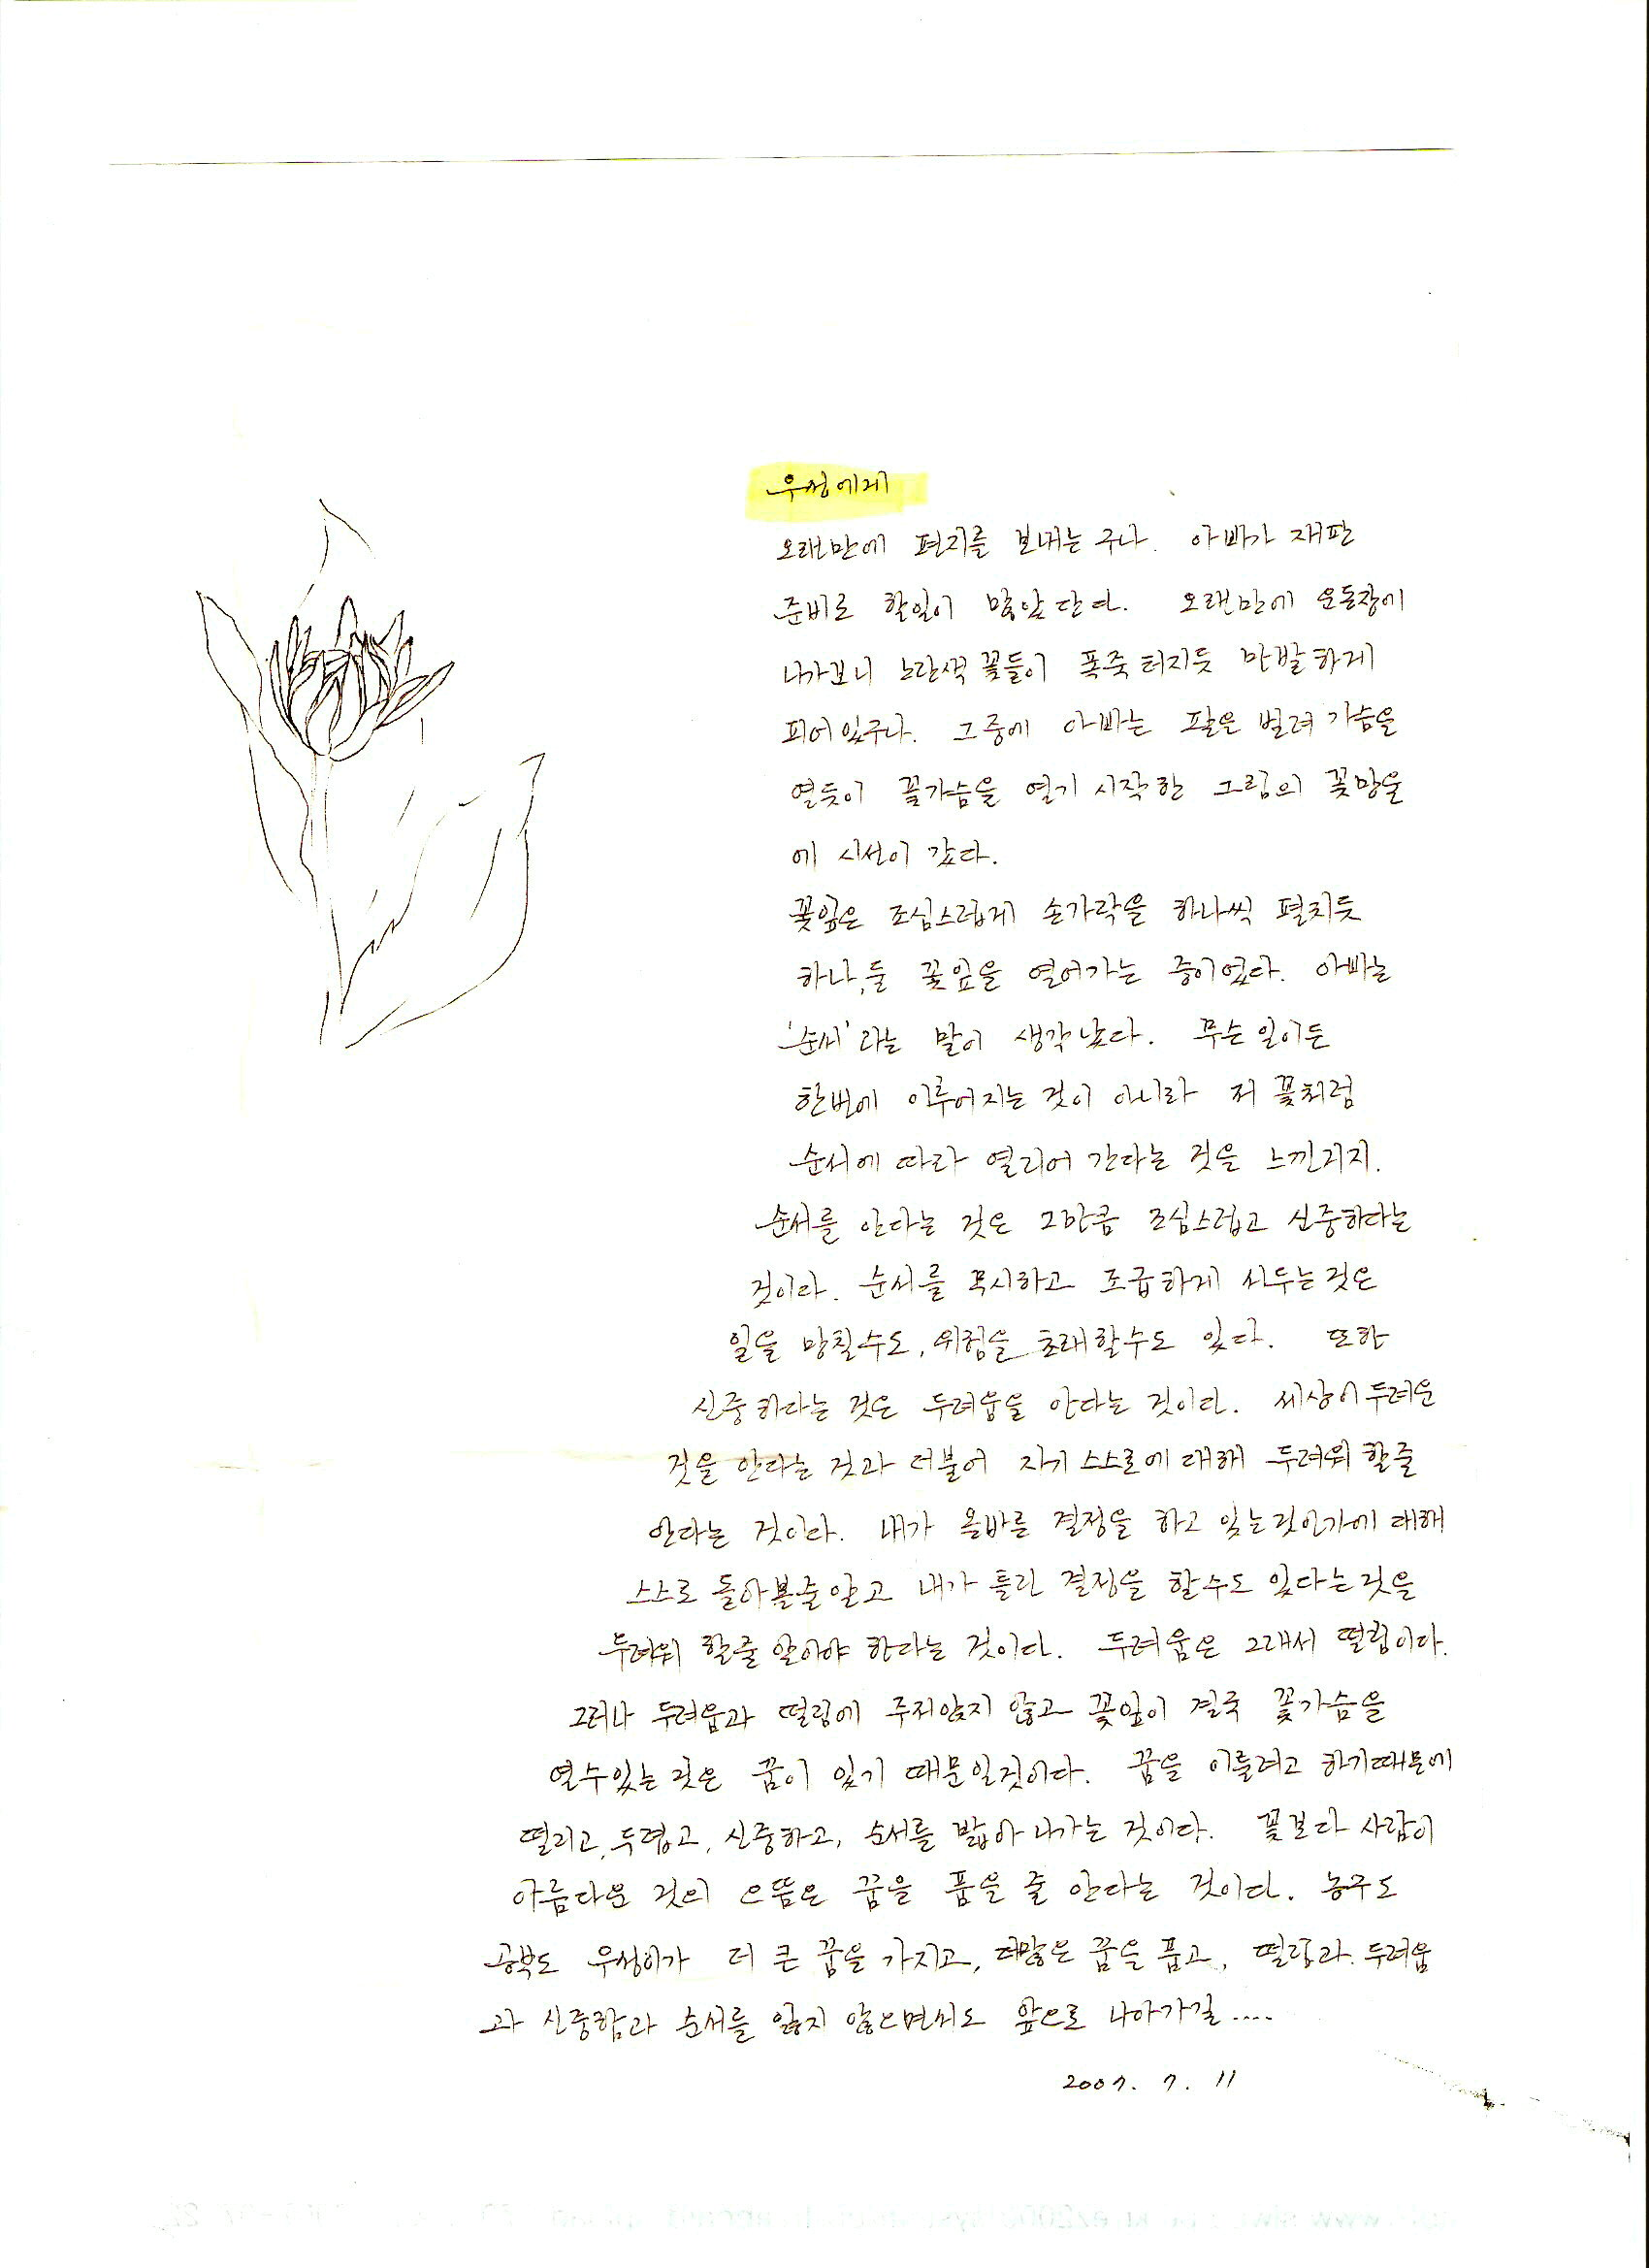 우성에게
오랜만에 편지를 보내는 구나. 아빠가 재판
준비로 할일이 많았단다. 오랜만에 운동장에
나가보니 노란색 꽃들이 폭죽 터지듯 만발하게
피어있구나. 그중에 아빠는 팔을 벌려 가슴을
열듯이 꽃가슴을 열기 시작한 그림의 꽃망울
에 시선이 갔다.
꽃잎은 조심스럽게 손가락을 하나씩 펼치듯
하나, 둘 꽃잎을 열어가는 중이었다. 아빠는
'순서'라는 말이 생각났다. 무슨 일이든
한번에 이루어지는 것이 아니라 저 꽃처럼
순서에 따라 열리어 간다는 것을 느낀거지.
순서를 안다는 것은 그만큼 조심스럽고 신중하다는
것이다. 순서를 무시하고 조급하게 서두는것은
일을 망칠수도, 위험을 초래할수도 있다. 또한
신중하다는 것은 두려움을 안다는 것이다. 세상이 두려운
것을 안다는 것과 더불어 자기 스스로에 대해 두려워 할줄
안다는 것이다. 내가 올바른 결정을 하고 있는것인가에 대해
스스로 돌아볼줄 알고 내가 틀린 결정을 할수도 있다는것을
두려워 할줄 알아야 한다는 것이다. 두려움은 그래서 떨림이다.
그러나 두려움과 떨림에 주저앉지 않고 꽃잎이 결국 꽃가슴을
열수있는 것은 꿈이 있기 때문일것이다. 꿈을 이룰려고 하기때문에
떨리고, 두렵고, 신중하고, 순서를 밟아 나가는 것이다. 꽃보다 사람이
아름다운 것의 으뜸은 꿈을 품을 줄 안다는 것이다. 농구도
공부도 우성이가 더 큰 꿈을 가지고, 더많은 꿈을 품고, 떨림과 두려움
과 신중함과 순서를 잃지 않으면서도 앞으로 나아가길....
2007. 7. 11